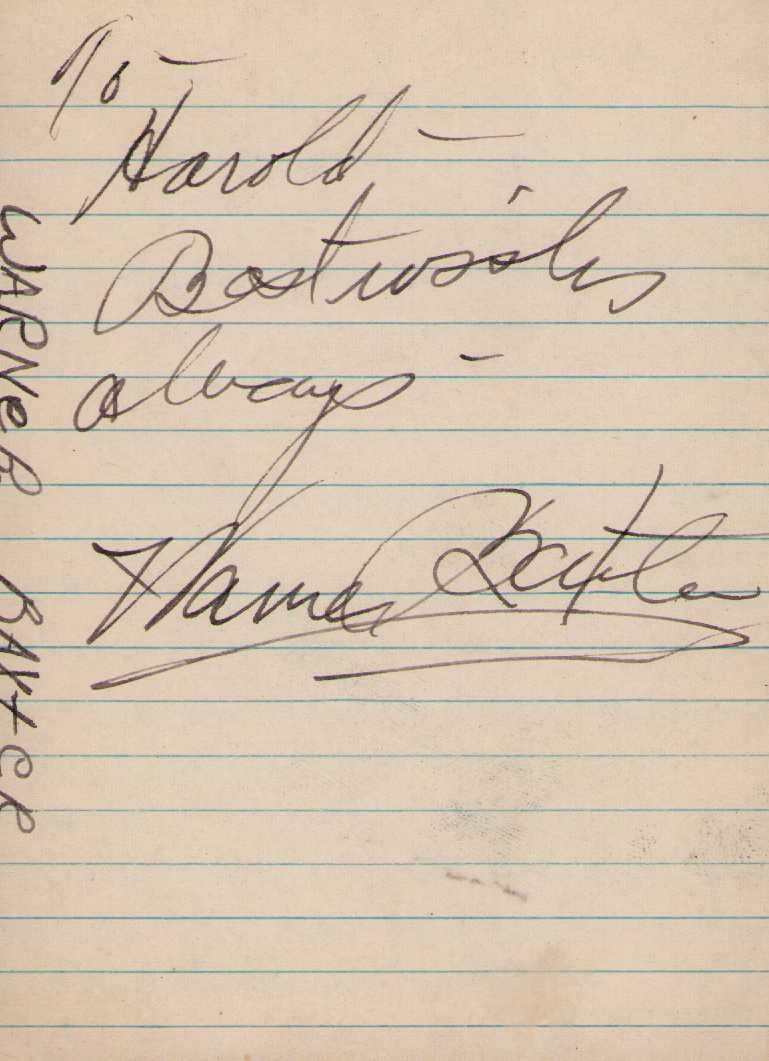 To -
Harold -
Best wishes
always -
Warner Baxter
WARNeR BAXteR